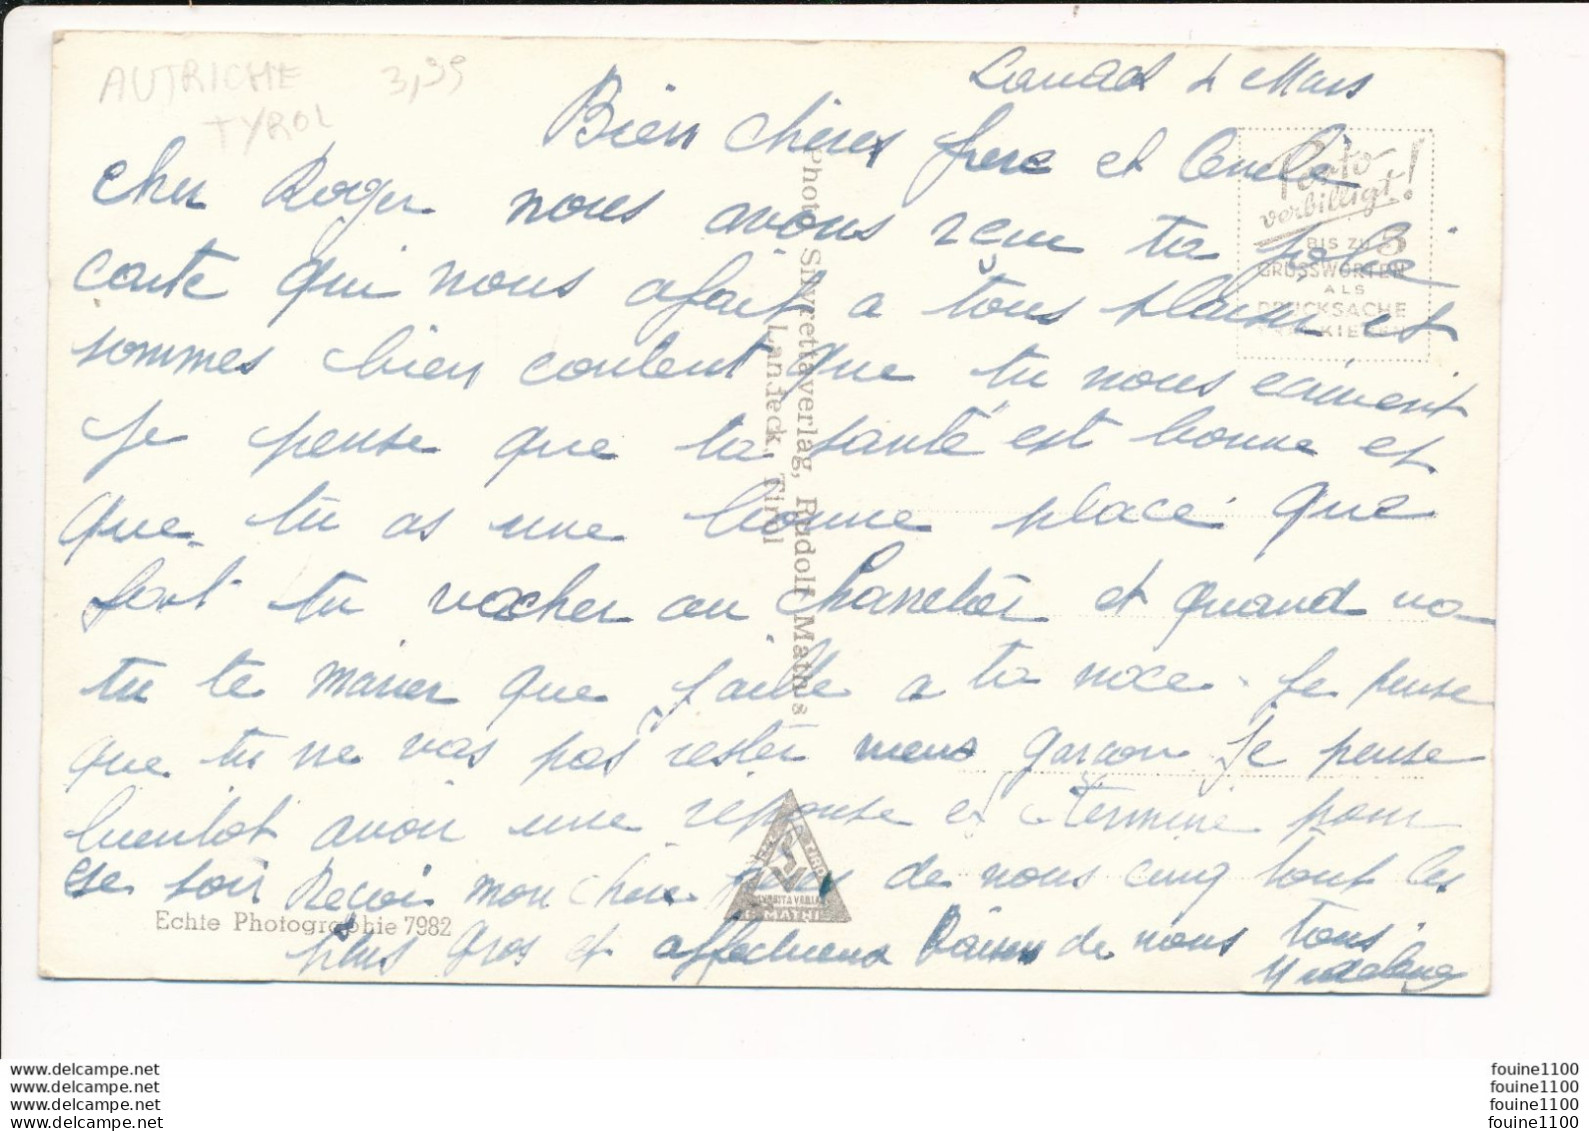 AUTRICHE 3,99
TYROL
4 Mars
Bien chères frere et
cher Roger nous avons recu ta jolie
carte qui nous a fait a tous plaisir et
sommes bien content que tu nous ecrivent
je pense que ta santé est bonne et
que tu as une bonne place que
fait tu vacher ou et quand va
tu te marier que j'aille a ta noce. Je pense
que tu ne vas pas rester vieux garcon Je pense
bientot avoir une reponse et termine pour
ce soir Recoi mon chere frere de nous cinq tout les
plus gros et affectueux Baisers de nous tous
Photo Silvrettaverlag, Rudolf Mathis
Landeck, Tirol
Porto
verbilligt!
BIS ZU 5
GRUSSWORTEN
ALS
DRUCKSACHE
FRANKIEREN
SILVRETTAVERLAG
R. MATHIS
Echte Photographie 7982
www.delcampe.net
www.delcampe.net
www.delcampe.net
www.delcampe.net
fouine1100
fouine1100
fouine1100
fouine1100